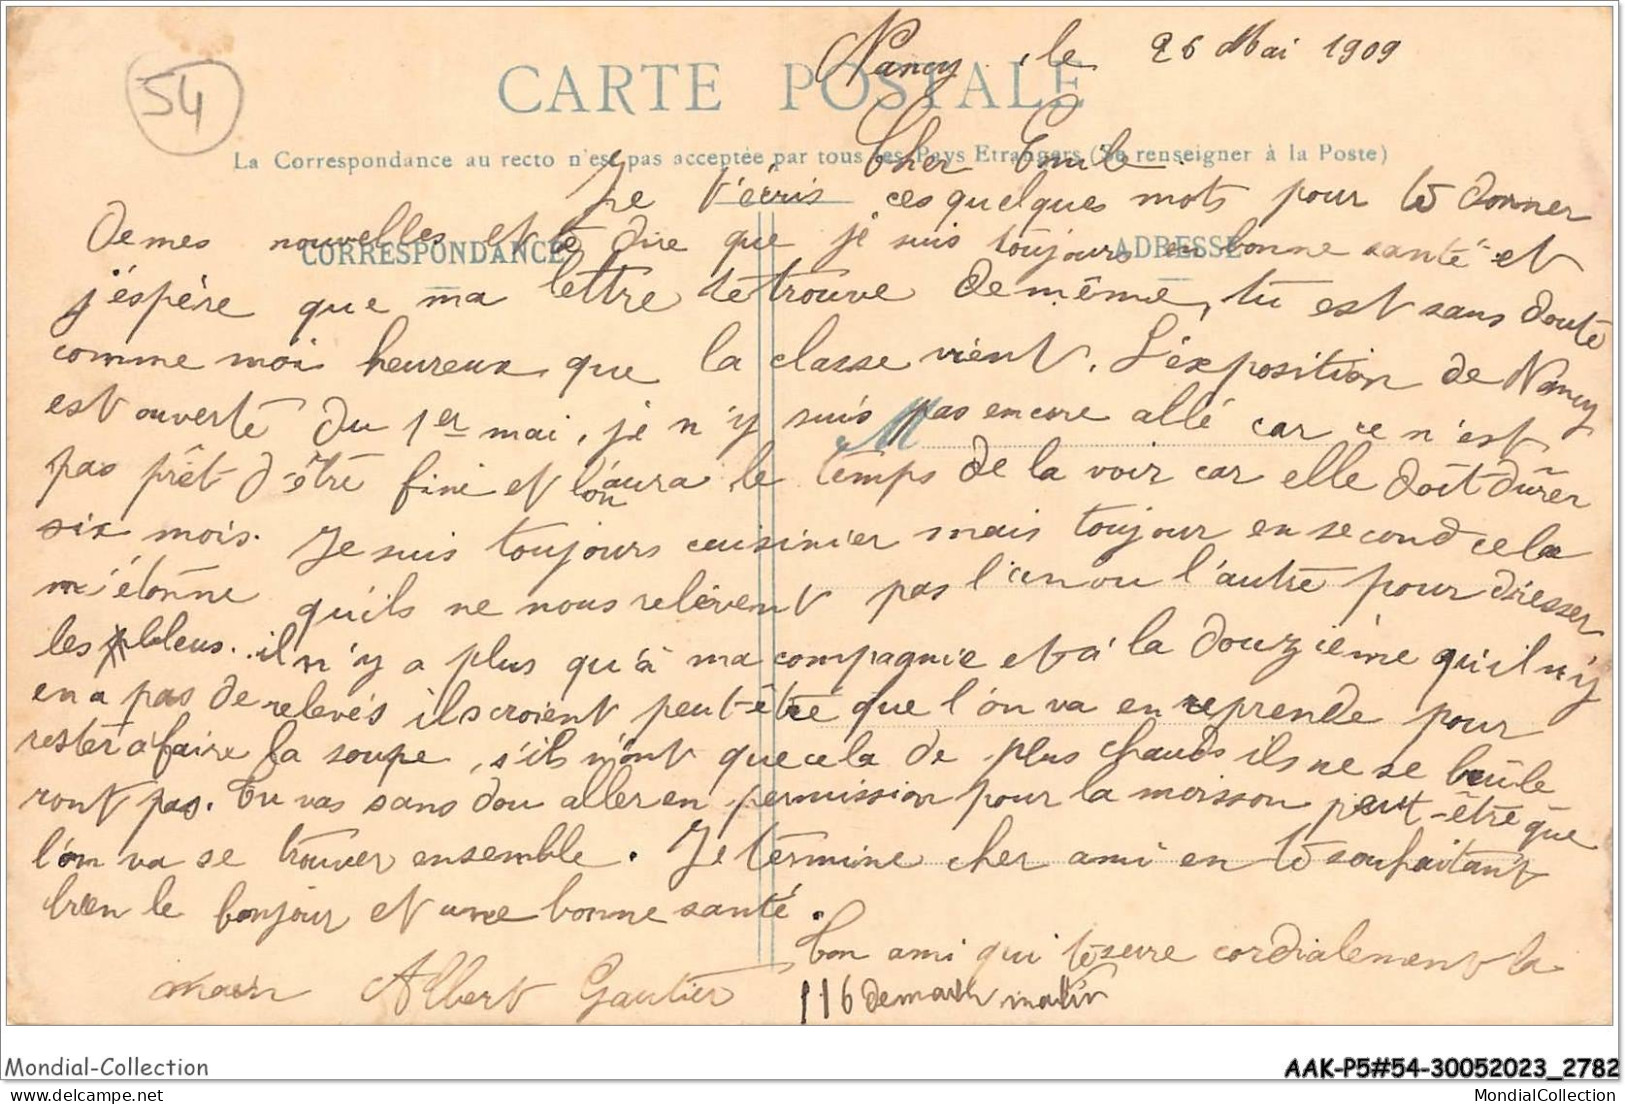 Nancy, le 26 Mai 1909
54
CARTE POSTALE
Cher Emile
La Correspondance au recto n'est pas acceptée par tous les Pays Etrangers (Se renseigner à la Poste)
Je t'écris ces quelques mots pour te donner
de mes nouvelles et te dire que je suis toujours en bonne santé et
CORRESPONDANCE
ADRESSE
j'éspère que ma lettre te trouve de même, tu est sans doute
comme moi heureux que la classe vient. L'éxposition de Nancy
est ouverte du 1er mai, je n'y suis pas encore allé car ce n'est
M
pas prêt d'être fini et l'on aura le temps de la voir car elle doit dûrer
six mois. Je suis toujours cuisinier mais toujour en second cela
m'étonne qu'ils ne nous relèvent pas l'un ou l'autre pour dresser
les bleus. il n'y a plus qu'à ma compagnie et à la douzième qu'il n'y
en a pas de relevés ils croient peut-être que l'on va en reprende pour
rester a faire la soupe, s'ils n'ont que cela de plus chauds ils ne se brûle
ront pas. Tu vas sans dou aller en permission pour la moisson peut-être que
l'on va se trouver ensemble. Je termine cher ami en te souhaitant
bien le bonjour et une bonne santé.
Ton ami qui te serre cordialement la
main Albert Gautier
116 demain matin
Mondial-Collection
AAK-P5#54-30052023_2782
MondialCollection